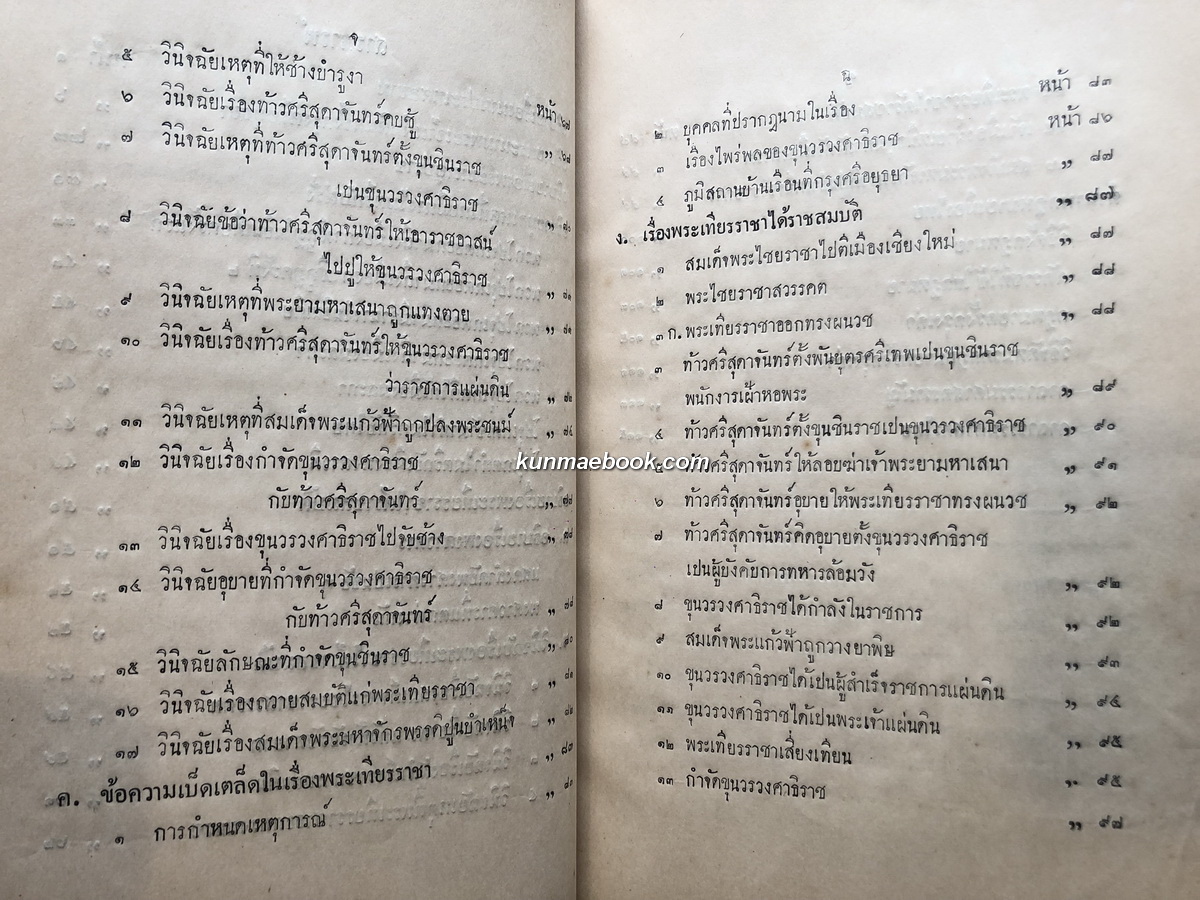 จ
๕ วินิจฉัยเหตุที่ให้ช้างบำรูงา หน้า ๖๗
๖ วินิจฉัยเรื่องท้าวศรีสุดาจันทร์คบชู้ ,, ๖๘
๗ วินิจฉัยเหตุที่ท้าวศรีสุดาจันทร์ตั้งขุนชินราช
เปนขุนวรวงศาธิราช ,, ๗๐
๘ วินิจฉัยข้อว่าท้าวศรีสุดาจันทร์ให้เอาราชอาสน์
ไปปูให้ขุนวรวงศาธิราช ,, ๗๑
๙ วินิจฉัยเหตุที่พระยามหาเสนาถูกแทงตาย ,, ๗๑
๑๐ วินิจฉัยเรื่องท้าวศรีสุดาจันทร์ให้ขุนวรวงศาธิราช
ว่าราชการแผ่นดิน ,, ๗๒
๑๑ วินิจฉัยเหตุที่สมเด็จพระแก้วฟ้าถูกปลงพระชนม์ ,, ๗๔
๑๒ วินิจฉัยเรื่องกำจัดขุนวรวงศาธิราช
กับท้าวศรีสุดาจันทร์ ,,
๑๓ วินิจฉัยเรื่องขุนวรวงศาธิราชไปจับช้าง ,,
๑๔ วินิจฉัยอุบายที่กำจัดขุนวรวงศาธิราช
กับท้าวศรีสุดาจันทร์ ,,
๑๕ วินิจฉัยลักษณะที่กำจัดขุนชินราช ,, ๘๐
๑๖ วินิจฉัยเรื่องถวายสมบัติแก่พระเทียรราชา ,, ๘๑
๑๗ วินิจฉัยเรื่องสมเด็จพระมหาจักรพรรดิปูนบำเหน็จ ,, ๘๒
ค. ข้อความเบ็ดเตล็ดในเรื่องพระเทียรราชา ,, ๘๓
๑ การกำหนดเหตุการณ์ ,, ๘๓
ฉ
๒ บุคคลที่ปรากฏนามในเรื่อง หน้า ๘๓
๓ เรื่องไพร่พลของขุนวรวงศาธิราช หน้า ๘๖
๔ ภูมิสถานบ้านเรือนที่กรุงศรีอยุธยา ,, ๘๗
ง. เรื่องพระเทียรราชาได้ราชสมบัติ ,, ๘๗
๑ สมเด็จพระไชยราชาไปตีเมืองเชียงใหม่ ,, ๘๗
๒ พระไชยราชาสวรรคต ,, ๘๘
๓ ก. พระเทียรราชาออกทรงผนวช ,, ๘๘
๓ ท้าวศรีสุดาจันทร์ตั้งพันบุตรศรีเทพเปนขุนชินราช
พนักงารเฝ้าหอพระ ,, ๘๙
๔ ท้าวศรีสุดาจันทร์ตั้งขุนชินราชเปนขุนวรวงศาธิราช ,, ๙๐
๕ ท้าวศรีสุดาจันทร์ให้ลอบฆ่าเจ้าพระยามหาเสนา ,, ๙๑
kunmaebook.com
๖ ท้าวศรีสุดาจันทร์อุบายให้พระเทียรราชาทรงผนวช ,, ๙๒
๗ ท้าวศรีสุดาจันทร์คิดอุบายตั้งขุนวรวงศาธิราช
เปนผู้บังคับการทหารล้อมวัง ,, ๙๒
๘ ขุนวรวงศาธิราชได้กำลังในราชการ ,, ๙๒
๙ สมเด็จพระแก้วฟ้าถูกวางยาพิษ ,, ๙๓
๑๐ ขุนวรวงศาธิราชได้เปนผู้สำเร็จราชการแผ่นดิน ,, ๙๔
๑๑ ขุนวรวงศาธิราชได้เปนพระเจ้าแผ่นดิน ,, ๙๕
๑๒ พระเทียรราชาเสี่ยงเทียน ,, ๙๕
๑๓ กำจัดขุนวรวงศาธิราช ,, ๙๗